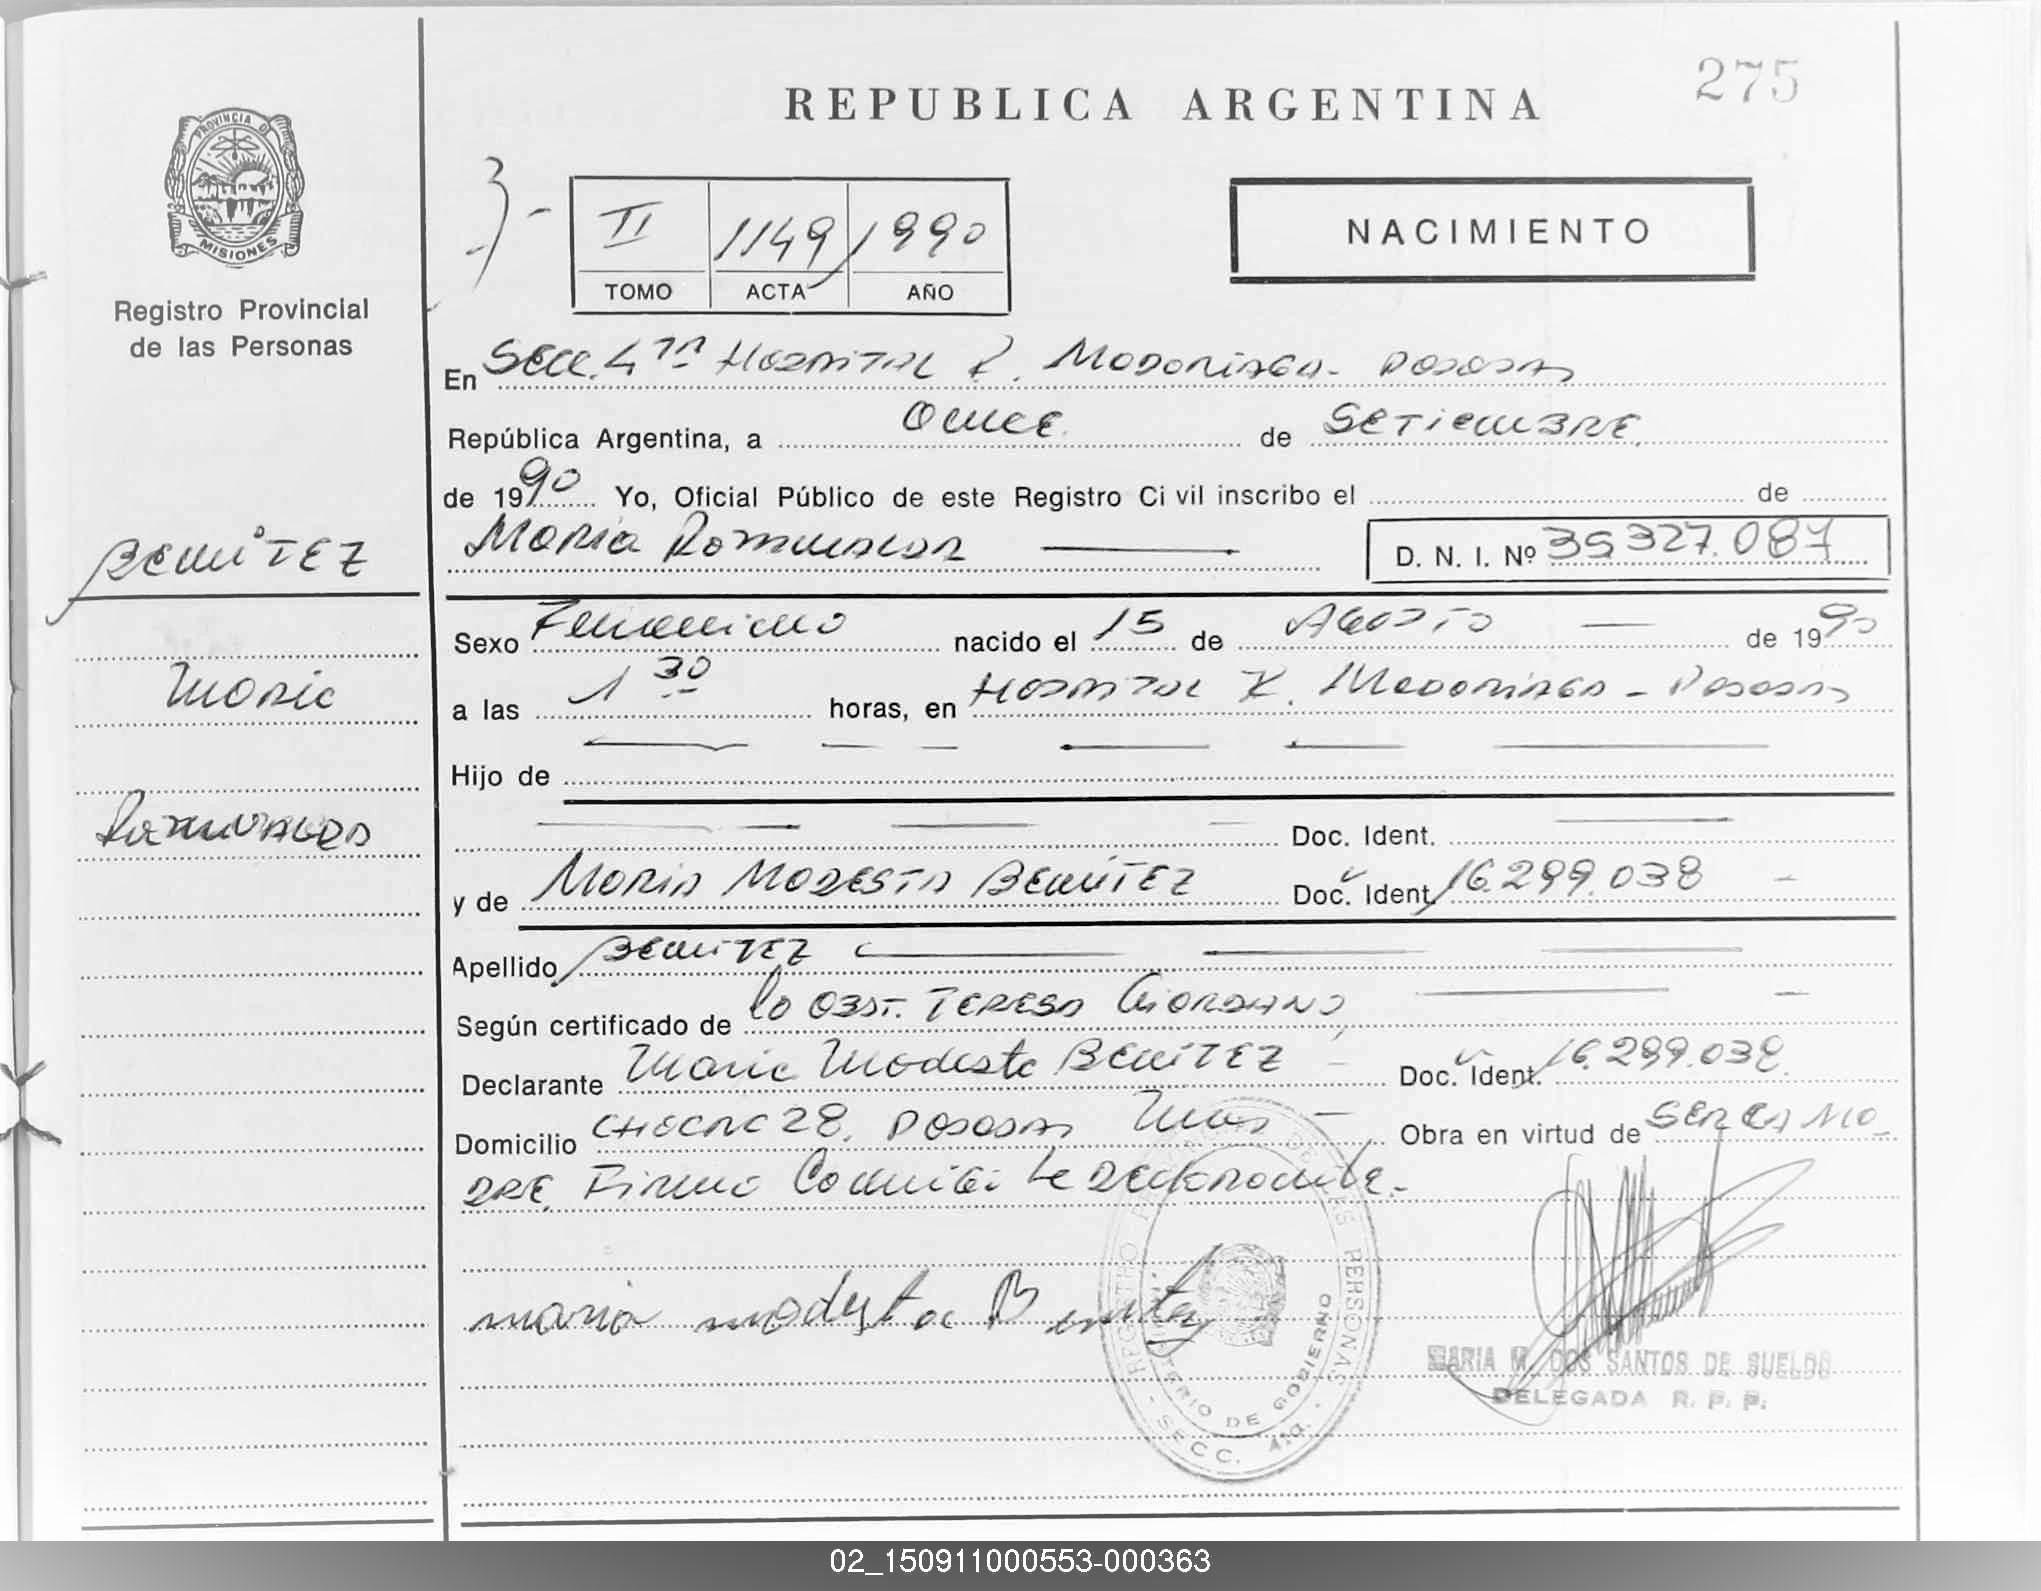 275
REPUBLICA ARGENTINA
PROVINCIA D
MISIONES
Registro Provincial
de las Personas
3-
II 1149 1990
TOMO ACTA AÑO
NACIMIENTO
En SECC. 4ta HOSPITAL R. MADARIAGA - POSADAS
República Argentina, a ONCE de SETIEMBRE
de 1990 Yo, Oficial Público de este Registro Ci vil inscribo el de
MARIA ROMUALDA D. N. I. Nº 35327.087
BENITEZ
Maria
ROMUALDA
Sexo Femenino nacido el 15 de AGOSTO de 1990
a las 1 30 horas, en HOSPITAL R. MADARIAGA - POSADAS
Hijo de
Doc. Ident.
y de MARIA MODESTA BENITEZ Doc. Ident. 16.299.038
Apellido BENITEZ
Según certificado de la OBST. TERESA GIORDANO
Declarante Maria Modesta BENITEZ Doc. Ident. 16.299.038
Domicilio 28. POSADAS Mnes Obra en virtud de SER LA MA
DRE. Firma Conmigo la declarante.-
maria modesta Benitez
REGISTRO DE LAS PERSONAS
MINISTERIO DE GOBIERNO
SECC. 4ta.
MARIA M. DOS SANTOS DE SUELDO
DELEGADA R. P. P.
02_150911000553-000363